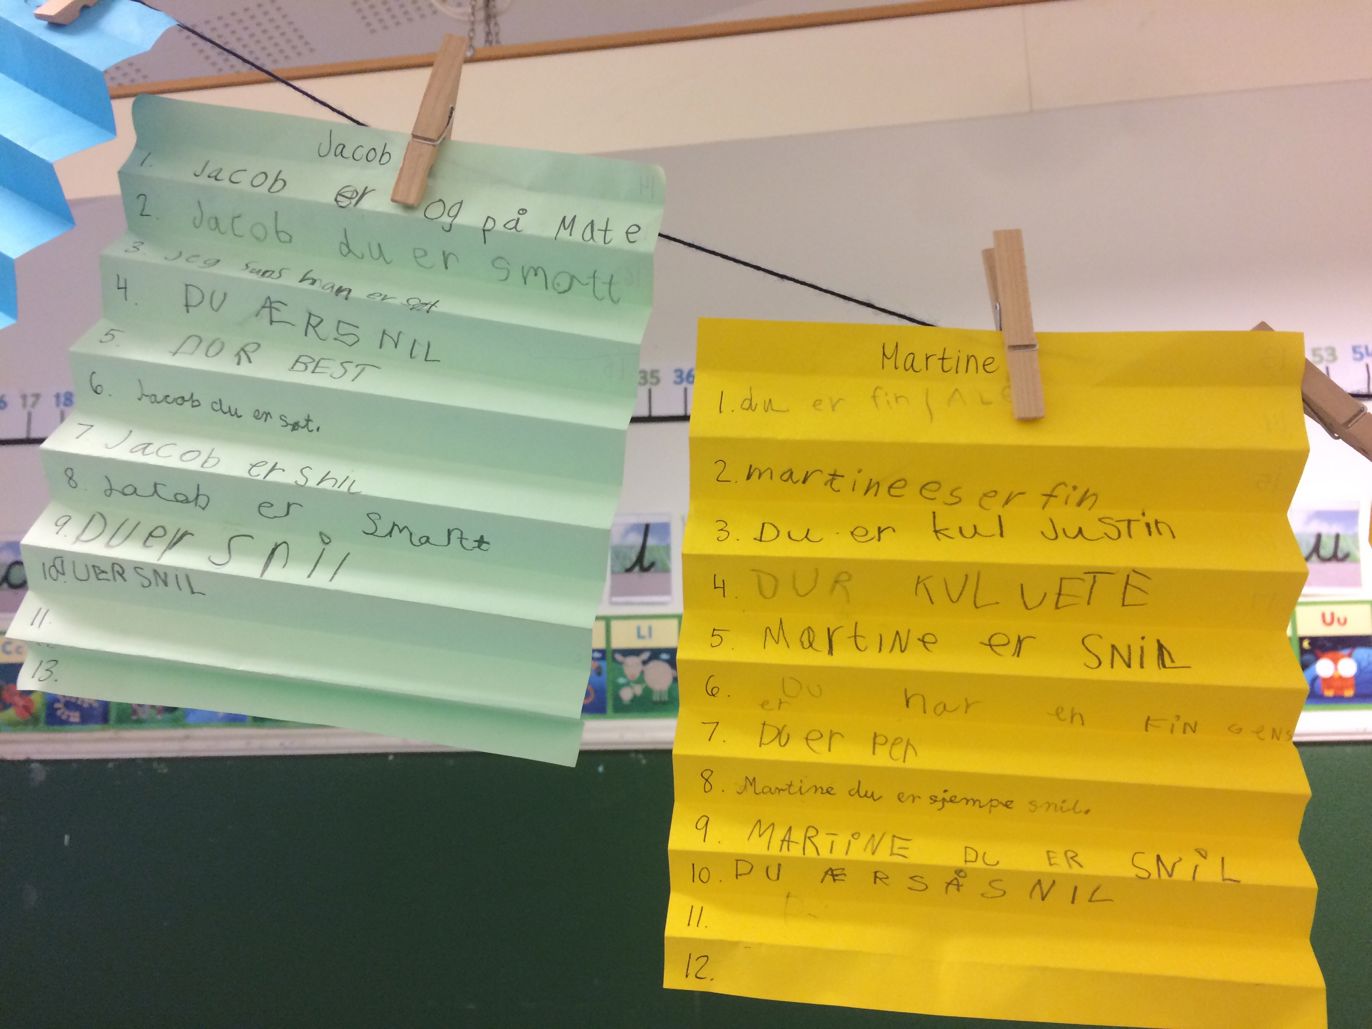 Jacob
1. Jacob er og på Mate
2. Jacob du er smatt
3. Jeg man er søt
4. DU ÆRSNIL
5. DOR BEST
6. Jacob du er søt.
7. Jacob er snil
8. Jacob er Smart
9. DU er snil
10. DUERSNIL
11.
13.
Martine
1. du er fin
2. martinees er fin
3. Du er kul JUSTin
4. DUR KUL VETE
5. MartiNe er SNiL
6. Du har en FiN GENS
er
7. DU er pen
8. Martine du er sjempe snil.
9. MARTiNE DU ER SNiL
10. DU ÆRSÅSNIL
11.
12.
17 18
35 36
53 54
Ll
Uu
l
u
Cc